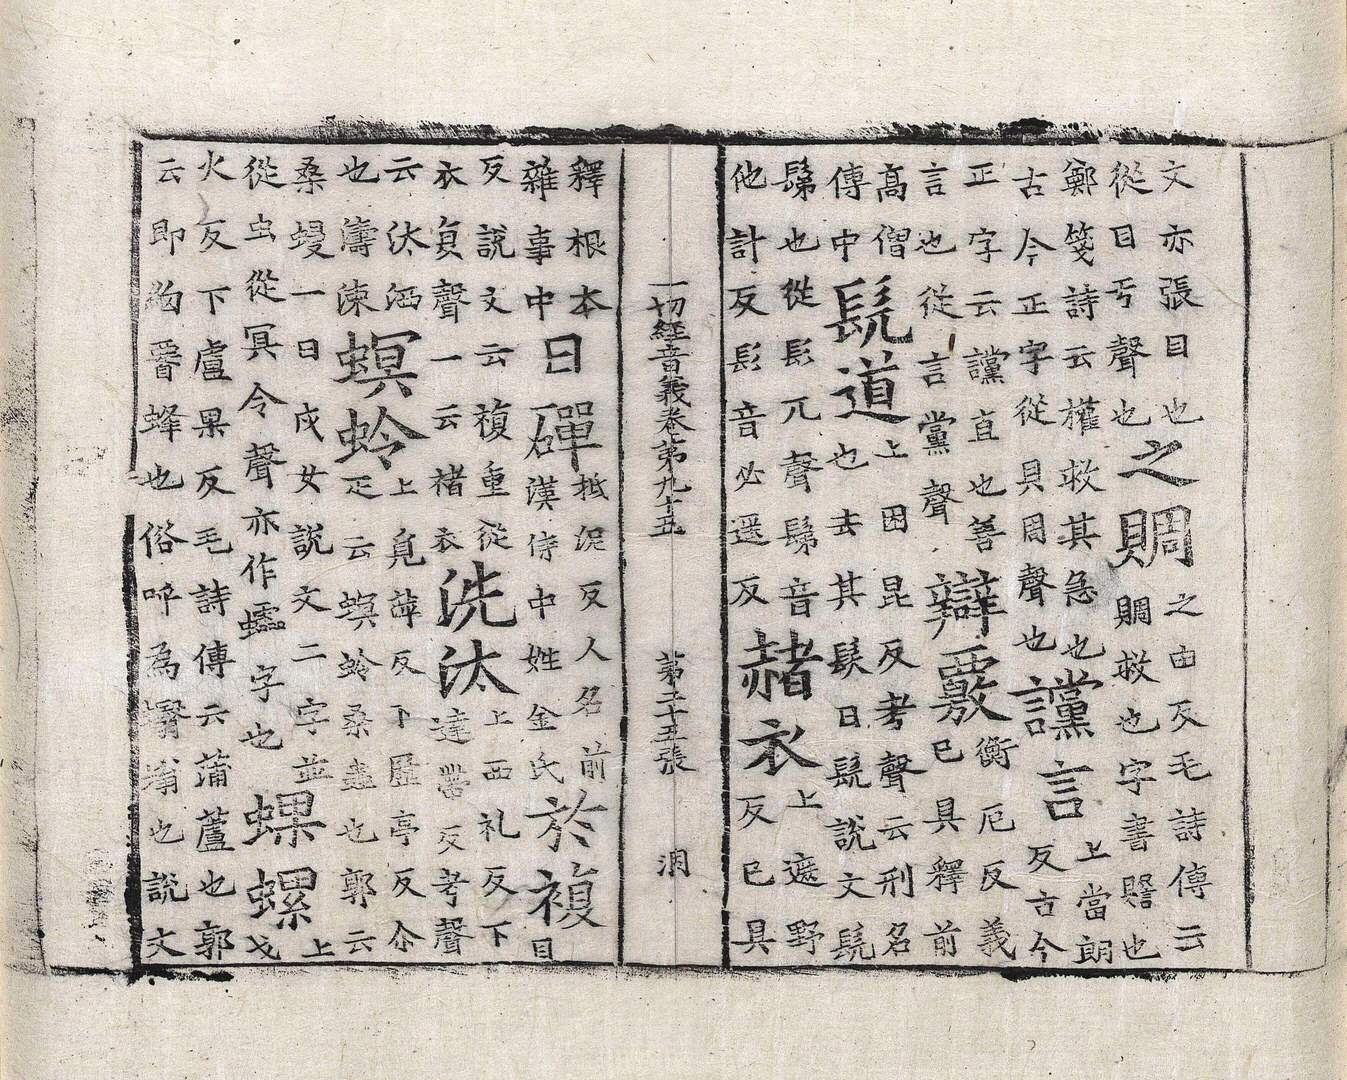 文亦張目也
從目丐聲也
之賙
之由反毛詩傳云
賙救也字書贍也
鄭箋詩云權救其急也
古今正字從貝周聲也
讜言
上當朗
反古今
正字云讜直也善
言也從言黨聲
辯覈
衡厄反義
已具釋前
高僧
傳中
髡道
上困昆反考聲云刑名
也去其髮曰髡說文髡
髴也從髟兀聲髴音
他計反髟音必遥反
赭衣
上遮野
反已具
一切經音義卷第九十五 第二十五張 洞
釋根本
雜事中
日磾
抵泥反人名前
石漢侍中姓金氏
於複
目
反說文云複重從
衣复聲一云褚衣
洗汰
上西礼反下
達蓋反考聲
云汰洒
也濤涑
螟蛉
上覓萍反下歷亭反尒
疋云螟蛉桑蟲也郭云
桑蟃一曰戍女說文二字並
從虫從冥令聲亦作字也
蜾螺
上
戈
火反下盧果反毛詩傳云蒲蘆也郭
云即約蜂也俗呼為螉也說文